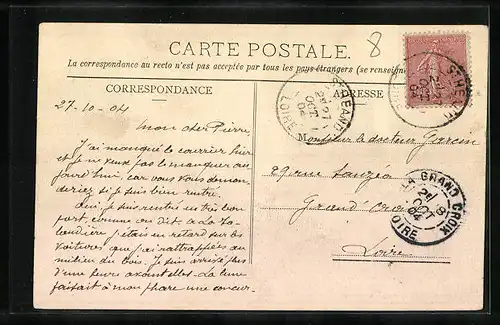 8
CARTE POSTALE.
La correspondance au recto n'est pas acceptée par tous les pays étrangers (se renseigner
CORRESPONDANCE
ADRESSE
27-10-04
Mon cher Pierre,
J'ai manqué le courrier hier
et je ne veux pas le manquer au-
jourd'hui, car vous vous deman-
deriez si je suis bien rentré.
Oui, je suis rentré en très bon
port, comme on dit à La
j'étais en retard sur les
voitures que j'ai rattrappées au
milieu du bois. Je suis arrivé plus
d'une heure avant elles. La lune
faisait à mon phare une concur-
Monsieur le docteur Garcin
Grand'Croix
Loire
LA GRAND CROIX
LOIRE